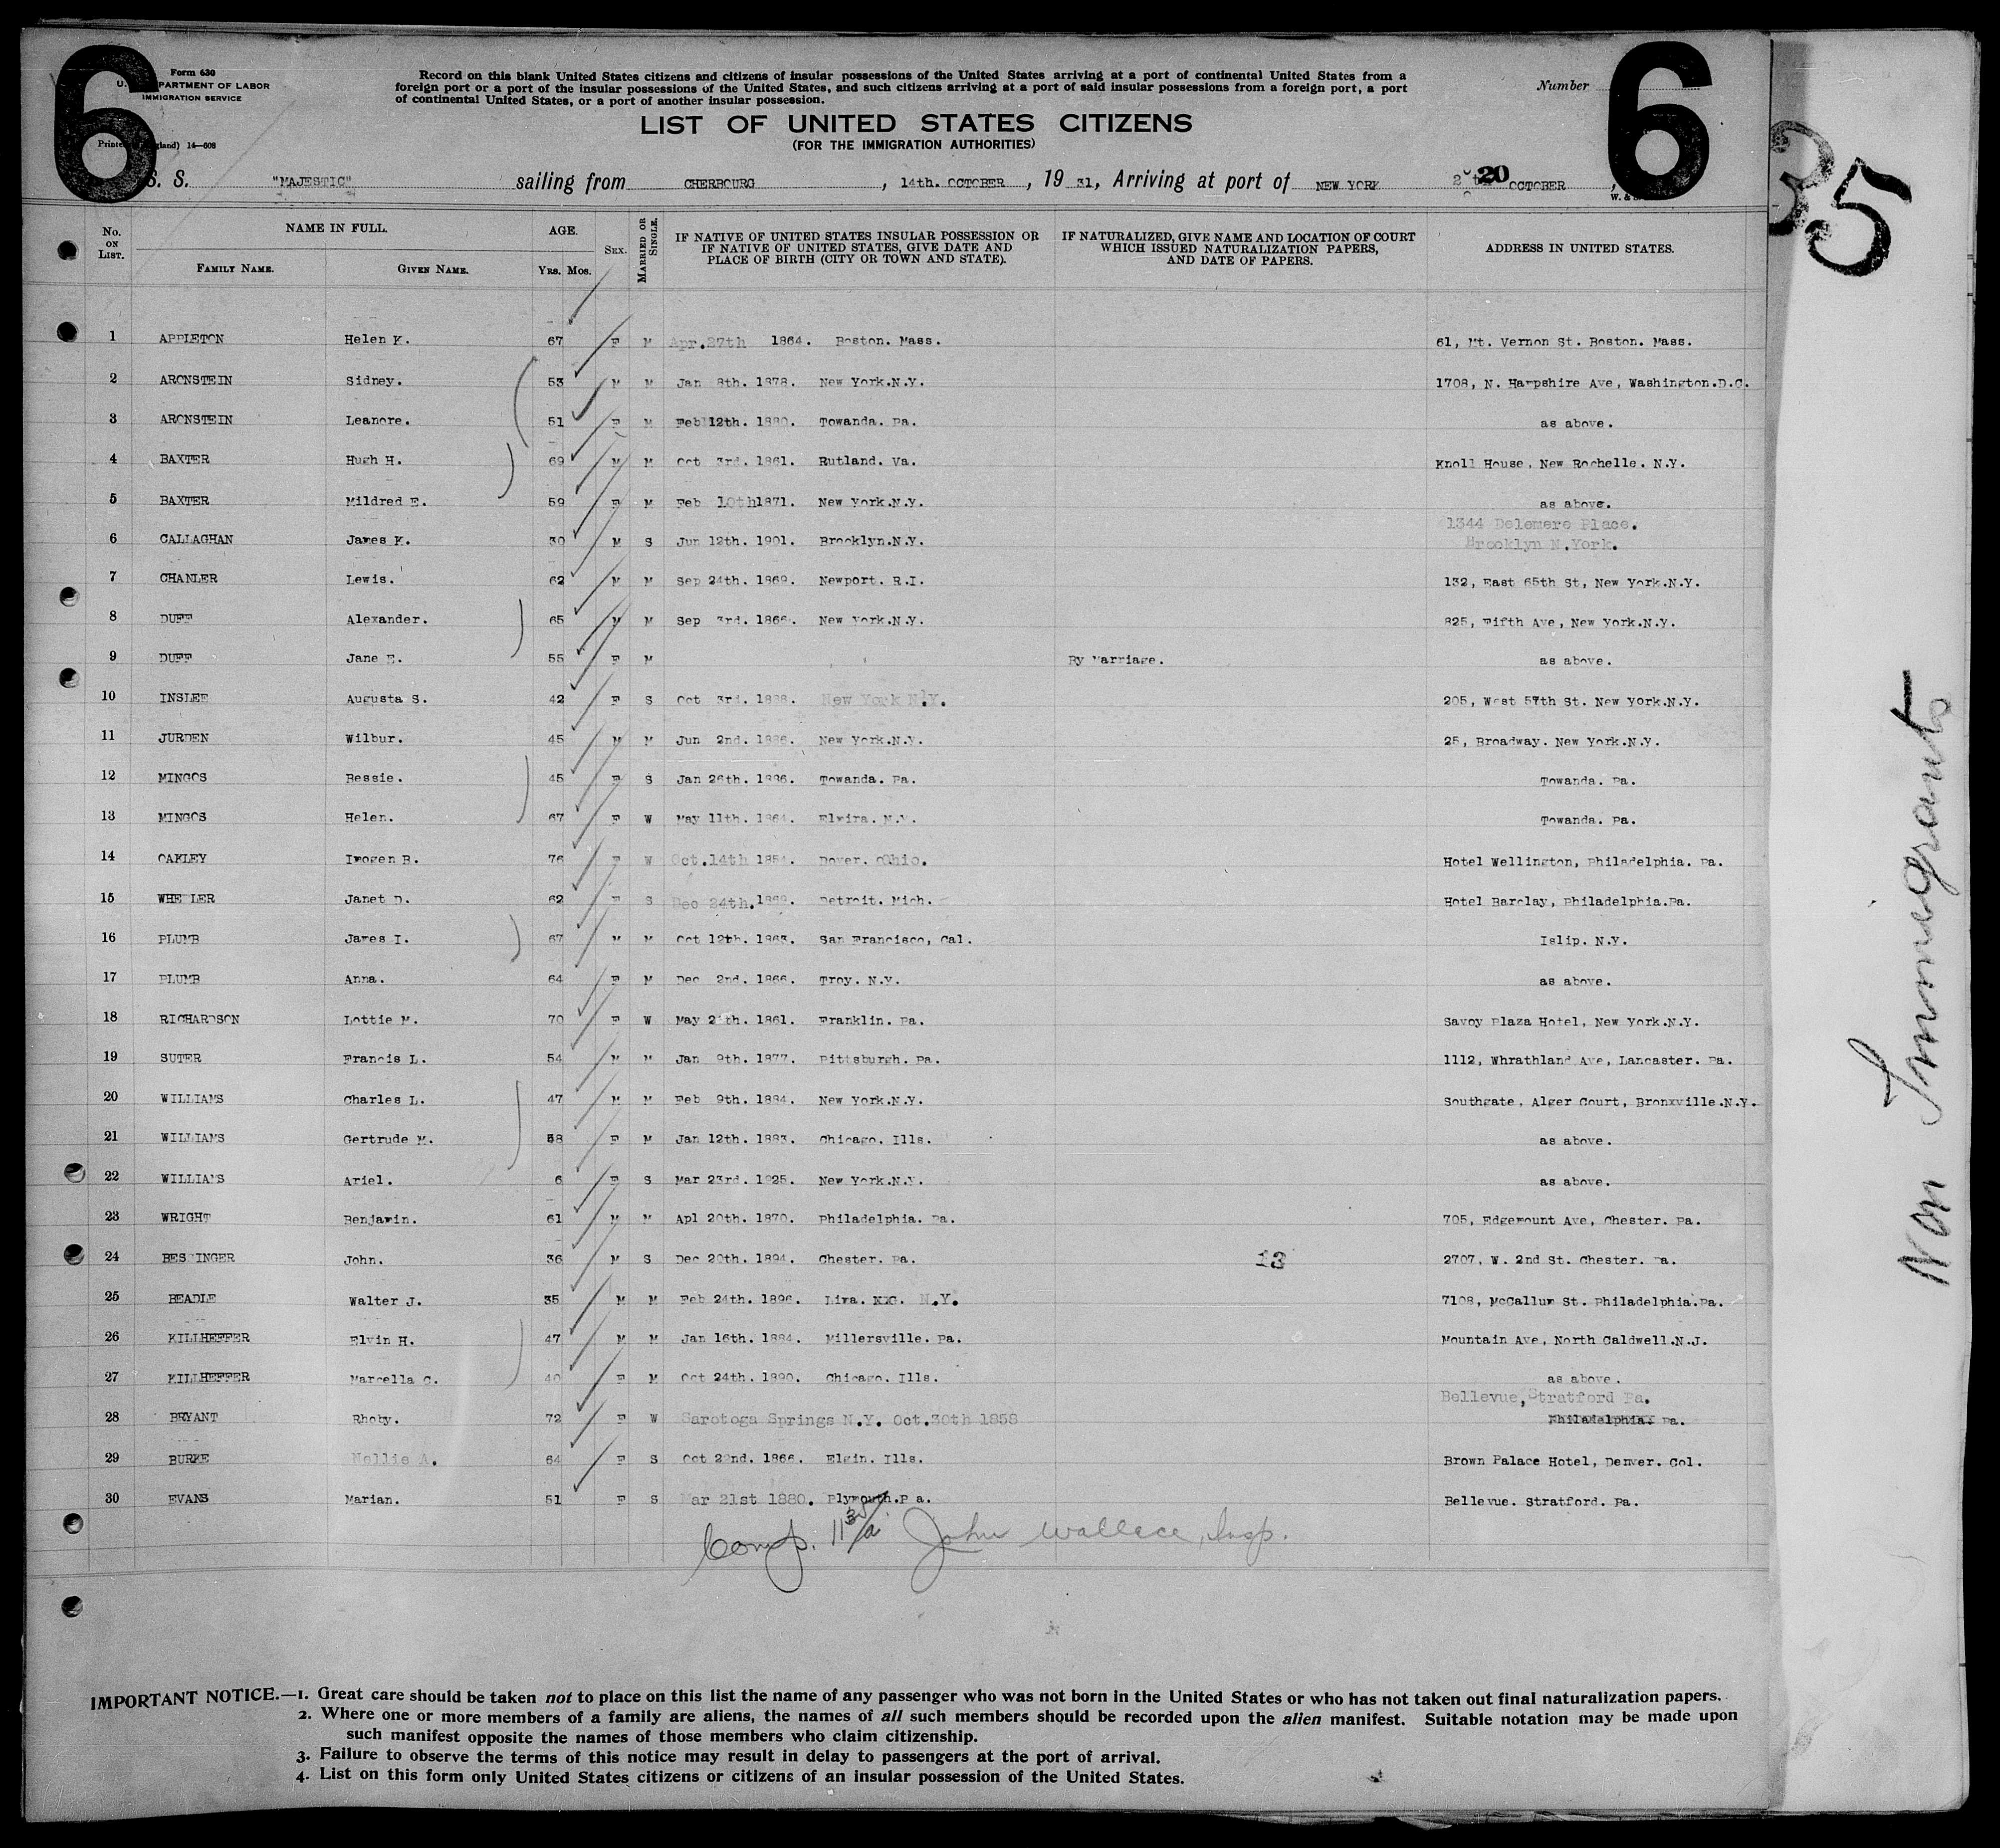 6
6
Form 630
U. DEPARTMENT OF LABOR
IMMIGRATION SERVICE
14—608
Record on this blank United States citizens and citizens of insular possessions of the United States arriving at a port of continental United States from a
foreign port or a port of the insular possessions of the United States, and such citizens arriving at a port of said insular possessions from a foreign port, a port
of continental United States, or a port of another insular possession.
Number
LIST OF UNITED STATES CITIZENS
(FOR THE IMMIGRATION AUTHORITIES)
S. S. "MAJESTIC" sailing from CHERBOURG, 14th. OCTOBER, 19 31, Arriving at port of NEW YORK 20 OCTOBER
35
No. ON LIST. NAME IN FULL. AGE. SEX. MARRIED OR SINGLE. IF NATIVE OF UNITED STATES INSULAR POSSESSION OR IF NATIVE OF UNITED STATES, GIVE DATE AND PLACE OF BIRTH (CITY OR TOWN AND STATE). IF NATURALIZED, GIVE NAME AND LOCATION OF COURT WHICH ISSUED NATURALIZATION PAPERS, AND DATE OF PAPERS. ADDRESS IN UNITED STATES.
FAMILY NAME. GIVEN NAME. YRS. MOS.
1 APPLETON Helen K. 67 F M Apr.27th 1864. Boston. Mass. 61, Mt. Vernon St. Boston. Mass.
2 ARONSTEIN Sidney. 53 M M Jan 8th. 1878. New York.N.Y. 1708, N. Hampshire Ave, Washington.D.C.
3 ARONSTEIN Leanore. 51 F M Feb 12th. 1880. Towanda. Pa. as above.
4 BAXTER Hugh H. 69 M M Oct 3rd. 1861. Rutland. Va. Knoll House, New Rochelle. N.Y.
5 BAXTER Mildred E. 59 F M Feb 10th 1871. New York.N.Y. as above.
6 CALLAGHAN James K. 30 M S Jun 12th. 1901. Brooklyn.N.Y. 1344 Delemere Place. Brooklyn N.York.
7 CHANLER Lewis. 62 M M Sep 24th. 1869. Newport. R.I. 132, East 65th St, New York.N.Y.
8 DUFF Alexander. 65 M M Sep 3rd. 1866. New York.N.Y. 825, Fifth Ave, New York.N.Y.
9 DUFF Jane E. 55 F M By Marriage. as above.
10 INSLEE Augusta S. 42 F S Oct 3rd. 1888. New York N.Y. 205, West 57th St. New York.N.Y.
11 JURDEN Wilbur. 45 M M Jun 2nd. 1886. New York.N.Y. 25, Broadway. New York.N.Y.
12 MINGOS Bessie. 45 F S Jan 26th. 1886. Towanda. Pa. Towanda. Pa.
13 MINGOS Helen. 67 F W May 11th. 1864. Elmira. N.Y. Towanda. Pa.
14 OAKLEY Imogen B. 76 F W Oct.14th Dover. Ohio. Hotel Wellington, Philadelphia. Pa.
15 WHEELER Janet D. 62 F S Dec 24th. Detroit. Mich. Hotel Barclay, Philadelphia.Pa.
16 PLUMB James I. 67 M M Oct 12th. 1863. San Francisco, Cal. Islip. N.Y.
17 PLUMB Anna. 64 F M Dec 2nd. 1866. Troy. N.Y. as above.
18 RICHARDSON Lottie M. 70 F W May 1861. Franklin. Pa. Savoy Plaza Hotel, New York.N.Y.
19 SUTER Francis L. 54 M M Jan 9th. 1877. Pittsburgh. Pa. 1112, Whrathland Ave, Lancaster. Pa.
20 WILLIAMS Charles L. 47 M M Feb 9th. 1884. New York.N.Y. Southgate, Alger Court, Bronxville.N.Y.
21 WILLIAMS Gertrude M. F M Jan 12th. 1883. Chicago. Ills. as above.
22 WILLIAMS Ariel. 6 F S Mar 23rd. 1925. New York.N.Y. as above.
23 WRIGHT Benjamin. 61 M M Apl 20th. 1870. Philadelphia. Pa. 705, Edgemount Ave, Chester. Pa.
24 BES INGER John. 36 M S Dec 20th. 1894. Chester. Pa. 13 2707, W. 2nd St. Chester. Pa.
25 BEADLE Walter J. 35 M M Feb 24th. 1896. Lima. N.Y. 7108, McCallum St. Philadelphia.Pa.
26 KILLHEFFER Elvin H. 47 M M Jan 16th. 1884. Millersville. Pa. Mountain Ave, North Caldwell.N.J.
27 KILLHEFFER Marcella C. 40 F M Oct 24th. 1890. Chicago. Ills. as above.
28 BRYANT Rhoby. 72 F W Sarotoga Springs N.Y. Oct.30th 1858 Bellevue, Stratford Pa. Philadelphia. Pa.
29 BURKE Nellie A. 64 F S Oct 22nd. 1866. Elgin. Ills. Brown Palace Hotel, Denver. Col.
30 EVANS Marian. 51 F S Mar 21st 1880. Plymouth.P a. Bellevue. Stratford. Pa.
Comp. 11 35/a John Wallace, Insp.
IMPORTANT NOTICE.—1. Great care should be taken not to place on this list the name of any passenger who was not born in the United States or who has not taken out final naturalization papers.
2. Where one or more members of a family are aliens, the names of all such members should be recorded upon the alien manifest. Suitable notation may be made upon
such manifest opposite the names of those members who claim citizenship.
3. Failure to observe the terms of this notice may result in delay to passengers at the port of arrival.
4. List on this form only United States citizens or citizens of an insular possession of the United States.
Non Immigrants